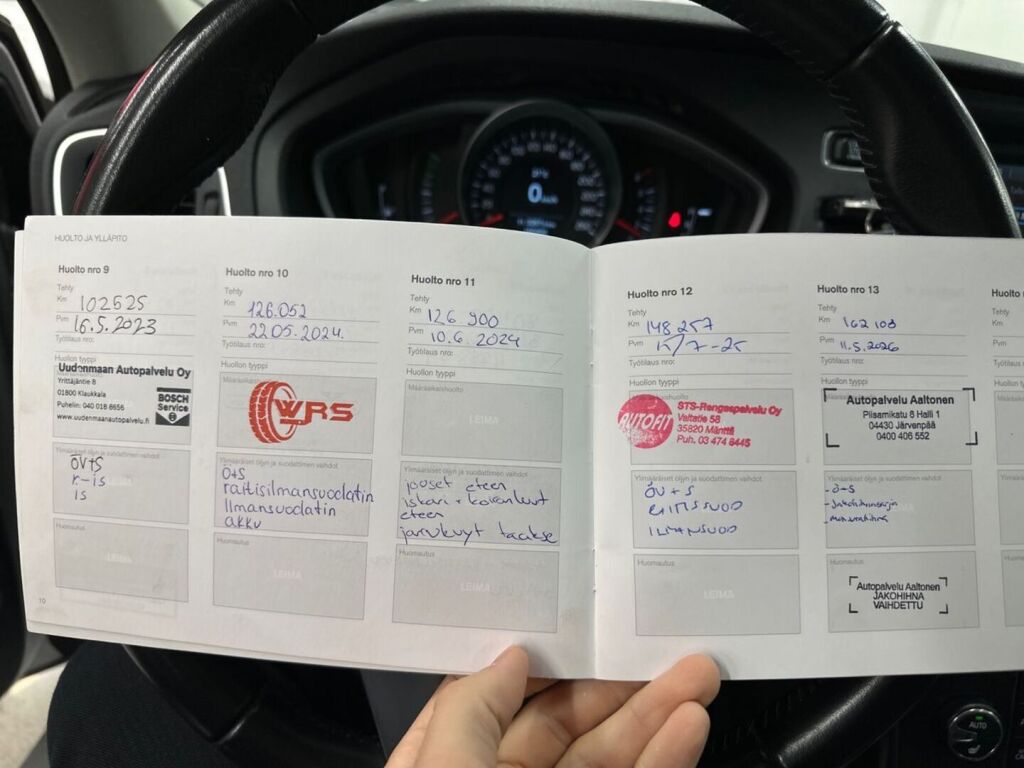 HUOLTO JA YLLÄPITO
Huolto nro 9
Tehty
Km 102525
Pvm 16.5.2023
Työtilaus nro:
Huollon tyyppi
Uudenmaan Autopalvelu Oy
Yrittäjäntie 8
01800 Klaukkala
Puhelin: 040 018 8656
www.uudenmaanautopalvelu.fi
BOSCH
Service
Ylimääräiset öljyn ja suodattimen vaihdot
ÖV+S
r-is
is
Huomautus
LEIMA
10
Huolto nro 10
Tehty
Km 126.052
Pvm 22.05.2024.
Työtilaus nro:
Huollon tyyppi
Määräaikaishuolto
WRS
Ylimääräiset öljyn ja suodattimen vaihdot
Ö+S
raitisilmansuodatin
Ilmansuodatin
akku
Huomautus
LEIMA
Huolto nro 11
Tehty
Km 126 900
Pvm 10.6.2024
Työtilaus nro:
Huollon tyyppi
Määräaikaishuolto
LEIMA
Ylimääräiset öljyn ja suodattimen vaihdot
jouset eteen
iskari + koiranluut
eteen
jarrulevyt taakse
Huomautus
LEIMA
Huolto nro 12
Tehty
Km 148 257
Pvm 15/7-25
Työtilaus nro:
Huollon tyyppi
AUTOFIT
STS-Rengaspalvelu Oy
Valtatie 58
35820 Mänttä
Puh. 03 474 8445
Ylimääräiset öljyn ja suodattimen vaihdot
ÖV+S
ILMANSUOD
Huomautus
LEIMA
Huolto nro 13
Tehty
Km 162 108
Pvm 11.5.2026
Työtilaus nro:
Huollon tyyppi
Määräaikaishuolto
Autopalvelu Aaltonen
Piisamikatu 8 Halli 1
04430 Järvenpää
0400 406 552
Ylimääräiset öljyn ja suodattimen vaihdot
-ö+S
-Jakohihnasarja
-monurahihna
Huomautus
Autopalvelu Aaltonen
JAKOHIHNA
VAIHDETTU
Huolto n
Tehty
Km
Pvm
Työtilaus
Huollon
0
AUTO